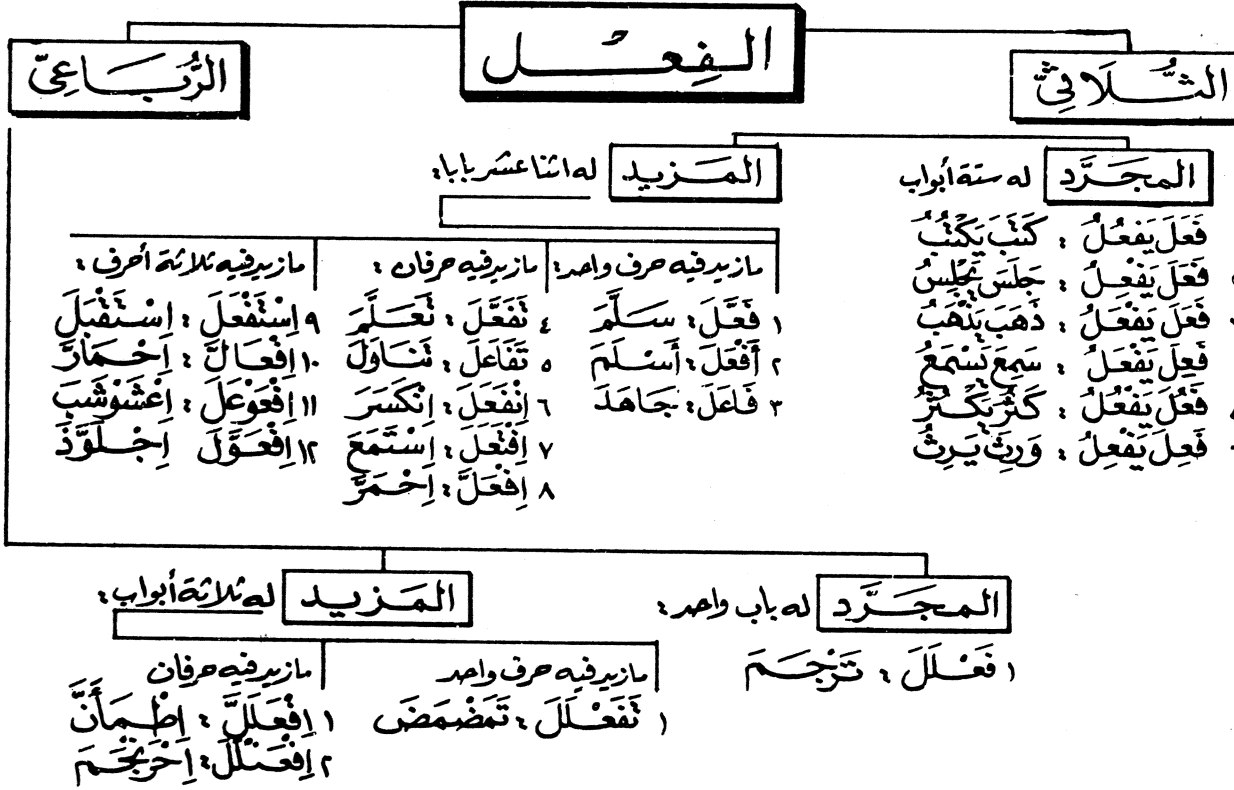 الفِعْل
الثُّلَاثِيّ
الرُّبَاعِيّ
المجَرَّد له ستة أبواب
فَعَلَ يَفْعُلُ : كَتَبَ يَكْتُبُ
فَعَلَ يَفْعِلُ : جَلَسَ يَجْلِسُ
فَعَلَ يَفْعَلُ : ذَهَبَ يَذْهَبُ
فَعِلَ يَفْعَلُ : سَمِعَ يَسْمَعُ
فَعُلَ يَفْعُلُ : كَثُرَ يَكْثُرُ
فَعِلَ يَفْعِلُ : وَرِثَ يَرِثُ
المَزيد له اثنا عشر بابا :
مازيد فيه حرف واحد :
١ فَعَّلَ : سَلَّمَ
٢ أَفْعَلَ : أَسْلَمَ
٣ فَاعَلَ : جَاهَدَ
مازيد فيه حرفان :
٤ تَفَعَّلَ : تَعَلَّمَ
٥ تَفَاعَلَ : تَنَاوَلَ
٦ اِنْفَعَلَ : اِنْكَسَرَ
٧ اِفْتَعَلَ : اِسْتَمَعَ
٨ اِفْعَلَّ : اِحْمَرَّ
مازيد فيه ثلاثة أحرف :
٩ اِسْتَفْعَلَ : اِسْتَقْبَلَ
١٠ اِفْعَالَّ : اِحْمَارَّ
١١ اِفْعَوْعَلَ : اِعْشَوْشَبَ
١٢ اِفْعَوَّلَ اِجْلَوَّذَ
المجَرَّد له باب واحد :
١ فَعْلَلَ : تَرْجَمَ
المَزيد له ثلاثة أبواب :
مازيد فيه حرف واحد
١ تَفَعْلَلَ : تَمَضْمَضَ
مازيد فيه حرفان
١ اِفْعَلَلَّ : اِطْمَأَنَّ
٢ اِفْعَنْلَلَ : اِحْرَنْجَمَ